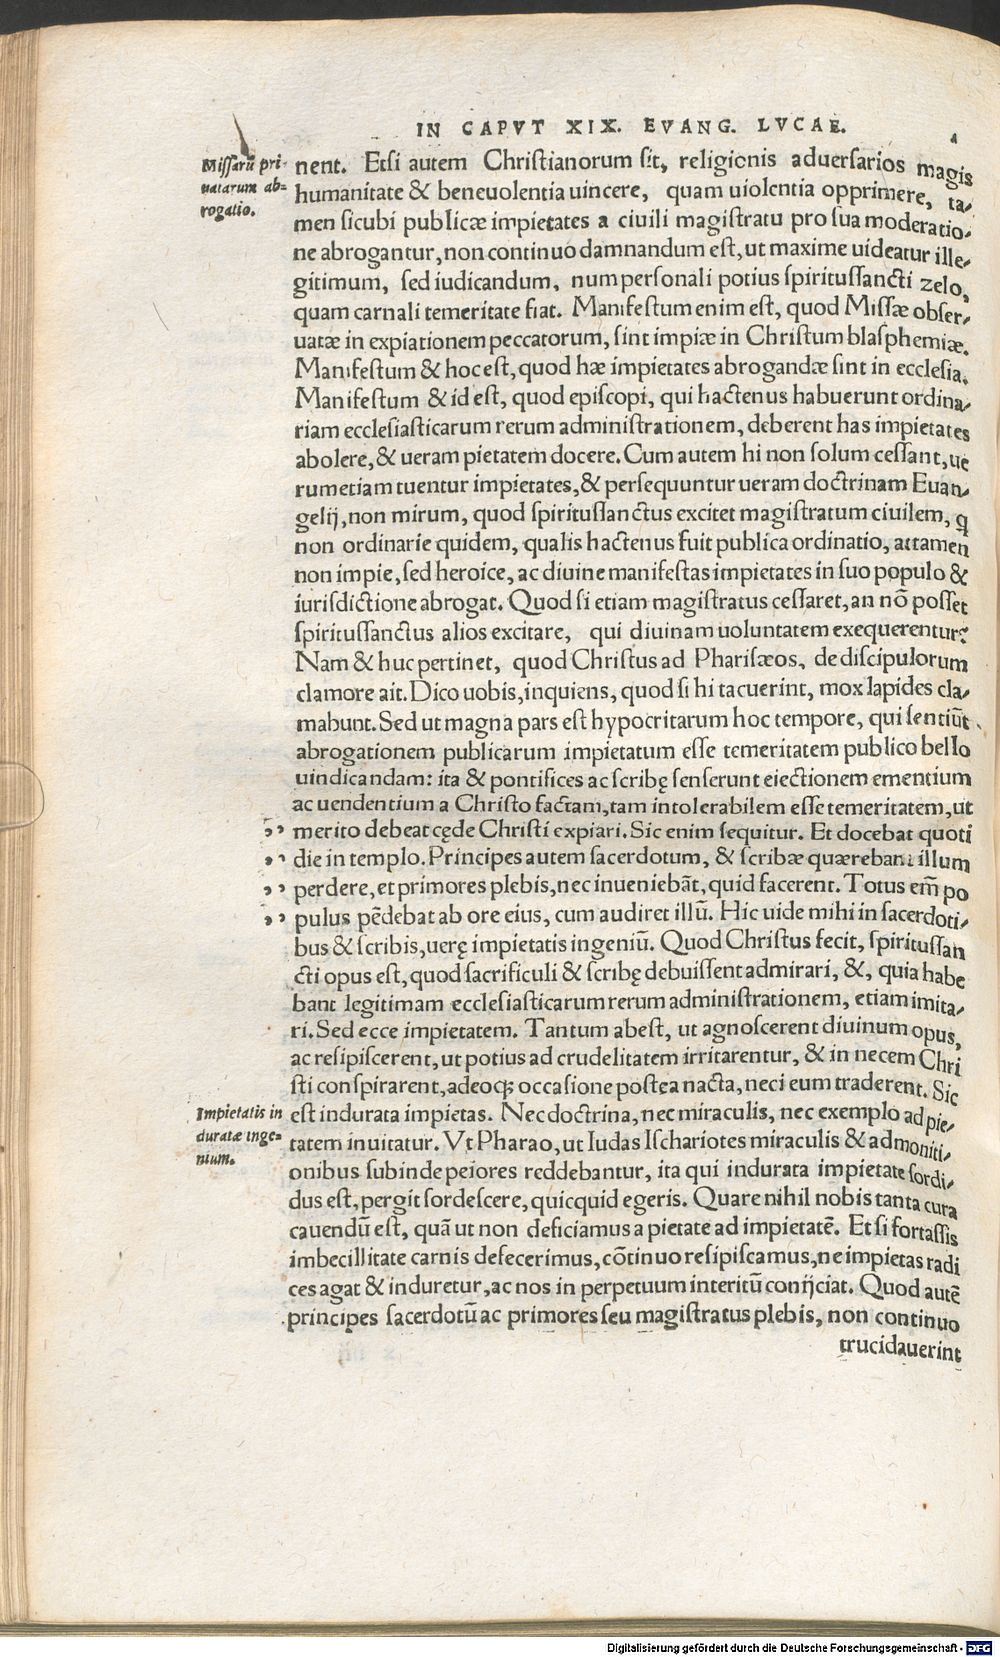 IN CAPVT XIX. EVANG. LVCAE.
Missarũ pri-
uatarum ab-
rogatio.
nent. Etsi autem Christianorum sit, religionis aduersarios magis
humanitate & beneuolentia uincere, quam uiolentia opprimere, ta-
men sicubi publicæ impietates a ciuili magistratu pro sua moderatio-
ne abrogantur, non continuo damnandum est, ut maxime uideatur ille-
gitimum, sed iudicandum, num personali potius spiritussancti zelo,
quam carnali temeritate fiat. Manifestum enim est, quod Missæ obser-
uatæ in expiationem peccatorum, sint impiæ in Christum blasphemiæ.
Manifestum & hoc est, quod hæ impietates abrogandæ sint in ecclesia.
Manifestum & id est, quod episcopi, qui hactenus habuerunt ordina-
riam ecclesiasticarum rerum administrationem, deberent has impietates
abolere, & ueram pietatem docere. Cum autem hi non solum cessant, ue
rumetiam tuentur impietates, & persequuntur ueram doctrinam Euan-
gelij, non mirum, quod spiritussanctus excitet magistratum ciuilem, q
non ordinarie quidem, qualis hactenus fuit publica ordinatio, attamen
non impie, sed heroice, ac diuine manifestas impietates in suo populo &
iurisdictione abrogat. Quod si etiam magistratus cessaret, an nõ posset
spiritussanctus alios excitare, qui diuinam uoluntatem exequerentur?
Nam & huc pertinet, quod Christus ad Pharisæos, de discipulorum
clamore ait. Dico uobis, inquiens, quod si hi tacuerint, mox lapides cla-
mabunt. Sed ut magna pars est hypocritarum hoc tempore, qui sentiũt
abrogationem publicarum impietatum esse temeritatem publico bello
uindicandam: ita & pontifices ac scribę senserunt eiectionem ementium
ac uendentium a Christo factam, tam intolerabilem esse temeritatem, ut
merito debeat cęde Christi expiari. Sic enim sequitur. Et docebat quoti
die in templo. Principes autem sacerdotum, & scribæ quærebant illum
perdere, et primores plebis, nec inueniebãt, quid facerent. Totus em̃ po
pulus pẽdebat ab ore eius, cum audiret illũ. Hic uide mihi in sacerdoti-
bus & scribis, uerę impietatis ingeniũ. Quod Christus fecit, spiritussan
cti opus est, quod sacrificuli & scribę debuissent admirari, &, quia habe
bant legitimam ecclesiasticarum rerum administrationem, etiam imita-
ri. Sed ecce impietatem. Tantum abest, ut agnoscerent diuinum opus,
ac resipiscerent, ut potius ad crudelitatem irritarentur, & in necem Chri
sti conspirarent, adeoq; occasione postea nacta, neci eum traderent. Sic
Impietatis in
duratæ inge-
nium.
est indurata impietas. Nec doctrina, nec miraculis, nec exemplo ad pie-
tatem inuitatur. Vt Pharao, ut Iudas Ischariotes miraculis & admoniti-
onibus subinde peiores reddebantur, ita qui indurata impietate sordi-
dus est, pergit sordescere, quicquid egeris. Quare nihil nobis tanta cura
cauendũ est, quã ut non deficiamus a pietate ad impietatẽ. Et si fortassis
imbecillitate carnis defecerimus, cõtinuo resipiscamus, ne impietas radi
ces agat & induretur, ac nos in perpetuum interitũ conijciat. Quod autẽ
principes sacerdotũ ac primores seu magistratus plebis, non continuo
trucidauerint
Digitalisierung gefördert durch die Deutsche Forschungsgemeinschaft - DFG